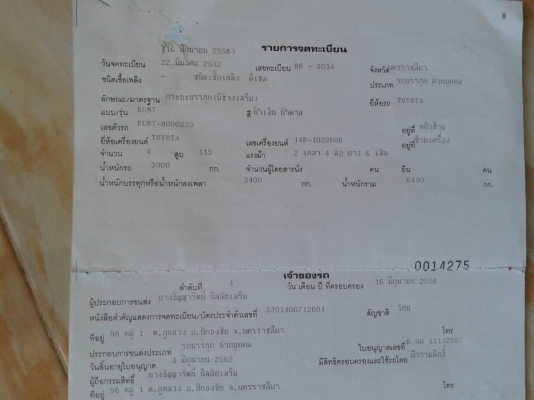 8
(16 มิถุนายน 2558) รายการจดทะเบียน
วันจดทะเบียน 22 มีนาคม 2532 เลขทะเบียน 86 - 3034 จังหวัด นครราชสีมา
ชนิดเชื้อเพลิง - ชนิดเชื้อเพลิง ดีเซล ประเภท รถบรรทุก ส่วนบุคคล
ลักษณะ/มาตรฐาน กระบะบรรทุก(มีข้างเสริม) ยี่ห้อรถ TOYOTA
แบบ/รุ่น BU87 สี ฟ้าเงิน ฟ้าตาล
เลขตัวรถ BU87-8000225 อยู่ที่ หน้าซ้าย
ยี่ห้อเครื่องยนต์ TOYOTA เลขเครื่องยนต์ 14B-1022606 อยู่ที่ ซ้ายเครื่อง
จำนวน 4 สูบ 115 แรงม้า 2 เพลา 4 ล้อ ยาง 6 เส้น
น้ำหนักรถ 3000 กก. จำนวนผู้โดยสารนั่ง คน ยืน คน
น้ำหนักบรรทุกหรือน้ำหนักลงเพลา 3400 กก. น้ำหนักรวม 6400 กก.
0014275
เจ้าของรถ
ลำดับที่ 1 วัน เดือน ปี ที่ครอบครอง 16 มิถุนายน 2558
ผู้ประกอบการขนส่ง
หนังสือสำคัญแสดงการจดทะเบียน/บัตรประจำตัวเลขที่ 3301400712604 สัญชาติ ไทย
ที่อยู่ 98 หมู่ 1 ต.ภูหลวง อ.ปักธงชัย จ.นครราชสีมา โทร
ประกอบการขนส่งประเภท รถบรรทุก ส่วนบุคคล ใบอนุญาตเลขที่ 6 นม 111/2557
วันสิ้นอายุใบอนุญาต 3 มิถุนายน 2562 มีสิทธิครอบครองและใช้รถโดย มีกรรมสิทธิ์
ผู้ถือกรรมสิทธิ์
ที่อยู่ 98 หมู่ 1 ต.ภูหลวง อ.ปักธงชัย จ.นครราชสีมา โทร